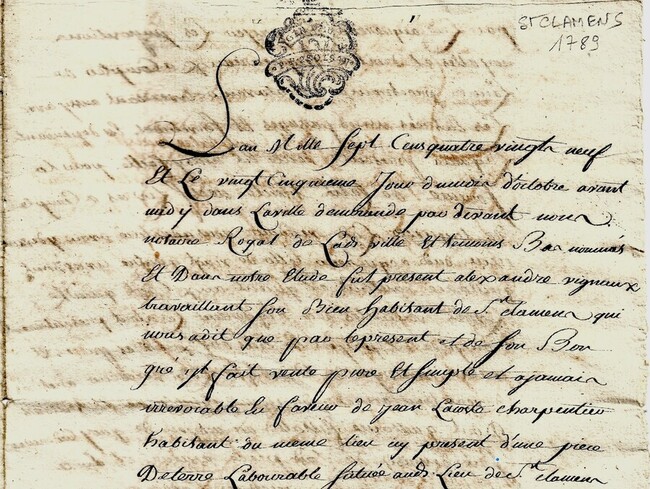 St CLAMENS
1789
L'an Mille Sept Cens quatre vingts neuf
Et Le vingt Cinquieme Jour du mois d'octobre avant
midy dans La ville demirande par devant nous
notaire Royal de Lad. ville Et temoins Bas nommés
Et Dans notre Etude fut present alexandre vignaux
travaillant son Bien habitant de St. Clamens qui
nous a dit que par Le present et de son Bon
gré il fait vente pure et simple et ajamais
irrevocable En faveur de jean Lacoste charpentier
habitant du meme lieu icy present d'une piece
De terre Labourable situee aud. Lieu de St. Clamens